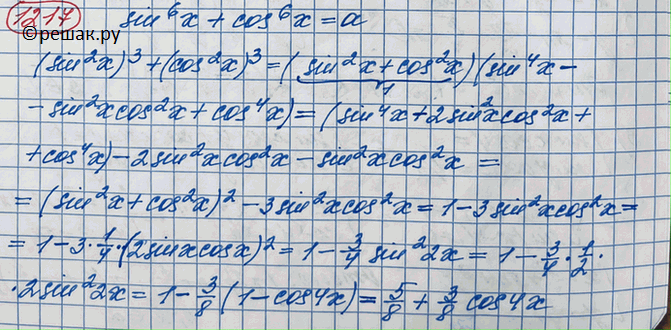 1217 sin⁶x + cos⁶x = a
©решак.ру
(sin²x)³ + (cos²x)³ = (sin²x + cos²x)(sin⁴x –
1
– sin²x cos²x + cos⁴x) = (sin⁴x + 2sin²x cos²x +
+ cos⁴x) – 2sin²x cos²x – sin²x cos²x =
= (sin²x + cos²x)² – 3sin²x cos²x = 1 – 3sin²x cos²x =
= 1 – 3 · 1/4 · (2sinx cosx)² = 1 – 3/4 sin²2x = 1 – 3/4 · 1/2 ·
· 2sin²2x = 1 – 3/8 (1 – cos4x) = 5/8 + 3/8 cos4x